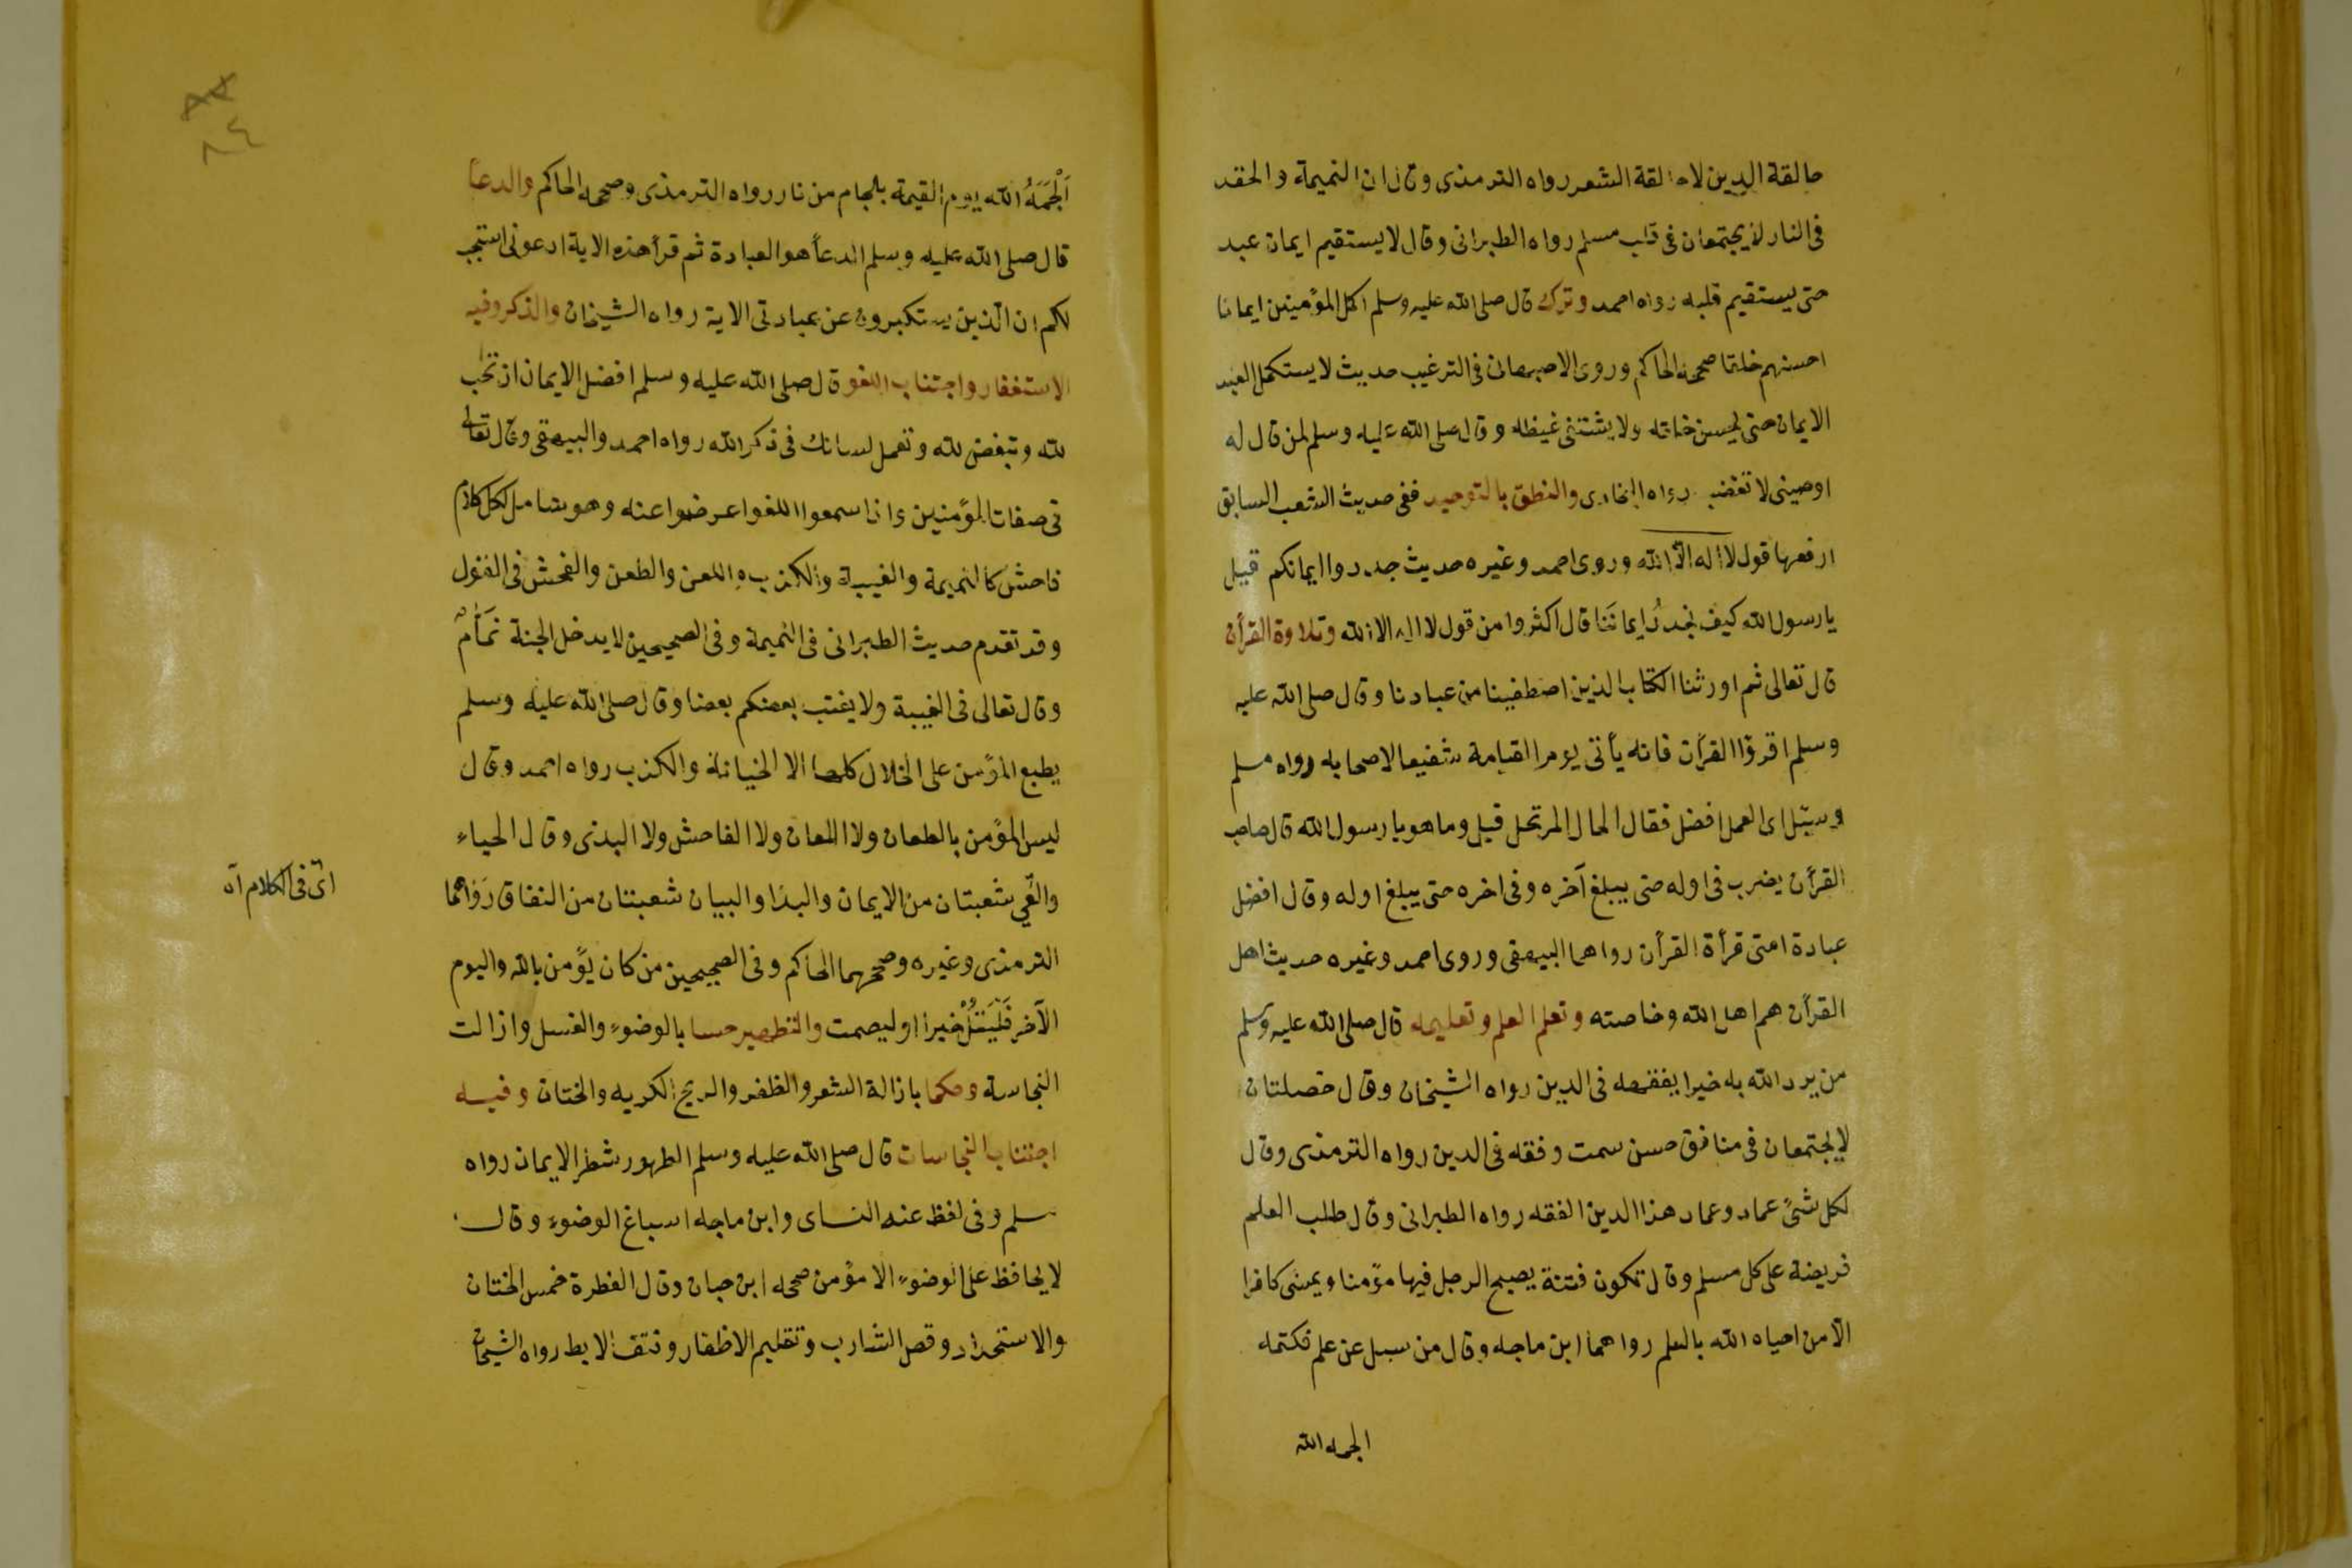 حالقة الدين لا حالقة الشعر رواه الترمذى وقال ان النميمة والحقد
فى النار لا يجتمعان فى قلب مسلم رواه الطبرانى وقال لا يستقيم ايمان عبد
حتى يستقيم قلبه رواه احمد وترك قال صلى الله عليه وسلم اكمل المؤمنين ايمانا
احسنهم خلقا صححه الحاكم وروى الاصبهانى فى الترغيب حديث لا يستكمل العبد
الايمان حتى يحسن خلقه ولا يشتفى غيظه وقال صلى الله عليه وسلم لمن قال له
اوصينى لا تغضب رواه البخارى والنطق بالتوحيد ففى حديث الشعب السابق
ارفعها قول لا اله الا الله وروى احمد وغيره حديث جددوا ايمانكم قيل
يا رسول الله كيف نجدد ايماننا قال اكثروا من قول لا اله الا الله وتلاوة القرآن
قال تعالى ثم اورثنا الكتاب الذين اصطفينا من عبادنا وقال صلى الله عليه
وسلم اقرؤا القرآن فانه يأتى يوم القيامة شفيعا لاصحابه رواه مسلم
وسئل اى العمل افضل فقال الحال المرتحل قيل وما هو يا رسول الله قال صاحب
القرآن يضرب فى اوله حتى يبلغ آخره وفى اخره حتى يبلغ اوله وقال افضل
عبادة امتى قرأة القرآن رواهما البيهقى وروى احمد وغيره حديث اهل
القرآن هم اهل الله وخاصته وتعلم العلم وتعليمه قال صلى الله عليه وسلم
من يرد الله به خيرا يفقهه فى الدين رواه الشيخان وقال خصلتان
لا يجتمعان فى منافق حسن سمت وفقه فى الدين رواه الترمذى وقال
لكل شئ عماد وعماد هذا الدين الفقه رواه الطبرانى وقال طلب العلم
فريضة على كل مسلم وقال تكون فتنة يصبح الرجل فيها مؤمنا ويمسى كافرا
الا من احياه الله بالعلم رواهما ابن ماجه وقال من سبل عن علم فكتمه
الجمه الله
اَلْجَمَهُ الله يوم القيمة بلجام من نار رواه الترمذى وصححه الحاكم والدعاً
قال صلى الله عليه وسلم الدعاً هو العبادة ثم قرأ هذه الاية ادعونى استجب
لكم ان الذين يستكبرون عن عبادتى الاية رواه الشيخان والذكر وفيه
الاستغفار واجتناب اللغو قال صلى الله عليه وسلم افضل الايمان ان تحب
لله وتبغض لله وتعمل لسانك فى ذكر الله رواه احمد والبيهقى وقال تعالى
فى صفات المؤمنين واذا سمعوا اللغو اعرضوا عنه وهو شامل لكل كلام
فاحش كالنميمة والغيبة والكذب واللعن والطعن والفحش فى القول
وقد تقدم حديث الطبرانى فى النميمة وفى الصحيحين لا يدخل الجنة نَمَّامٌ
وقال تعالى فى الغيبة ولا يغتب بعضكم بعضا وقال صلى الله عليه وسلم
يطبع المؤمن على الخلال كلها الا الخيانة والكذب رواه احمد وقال
ليس المؤمن بالطعان ولا اللعان ولا الفاحش ولا البذى وقال الحياء
والعِّي شعبتان من الايمان والبذا والبيان شعبتان من النفاق رَوَاهُمَا
اى فى الكلام اه
الترمذى وغيره وصححهما الحاكم وفى الصحيحين من كان يؤمن بالله واليوم
الآخر فَلْيَقُلْ خيرا او ليصمت والتطهير حسا بالوضوء والغسل وازالت
النجاسة وحكما بازالة الشعر والظفر والريح الكريه والختان وفيه
اجتناب النجاسات قال صلى الله عليه وسلم الطهور شطر الايمان رواه
مسلم وفى لفظ عنه النساى وابن ماجه اسباغ الوضوء وقال
لا يحافظ على الوضوء الا مؤمن صححه ابن حبان وقال الفطرة خمس الختان
والاستحداد وقص الشارب وتقليم الاظفار ونتف الابط رواه الشيخان
٨٤